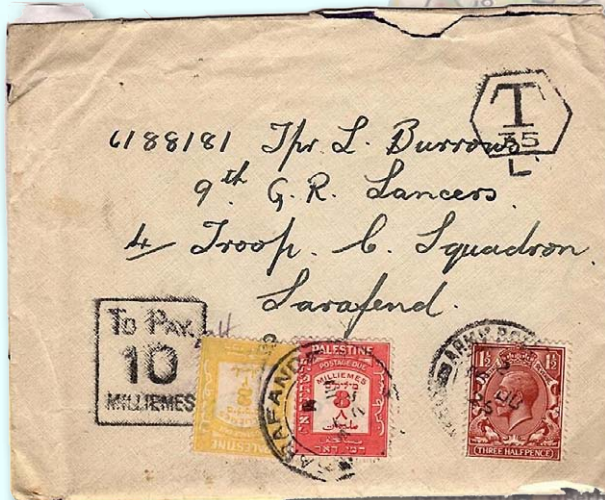 T
35
L
6188181 Tpr. L. Burrows
9th Q.R. Lancers.
4 Troop. C. Squadron.
Sarafend.
TO PAY
10
MILLIEMES
PALESTINE
PALESTINE
POSTAGE DUE
MILLIEMES
8
٨
דמי דאר
SARAFAND
ARMY
1½ 1½
THREE HALFPENCE